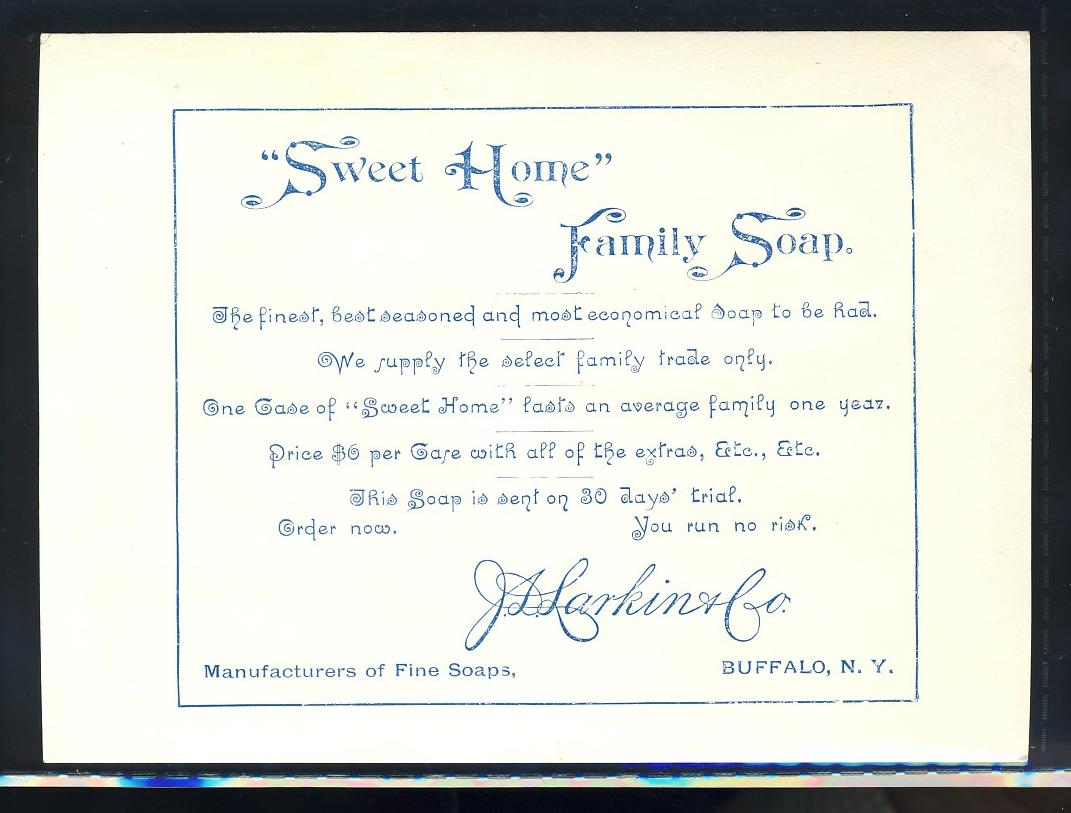 “Sweet Home”
Family Soap.
The finest, best seasoned and most economical Soap to be had.
We supply the select family trade only.
One Case of “Sweet Home” lasts an average family one year.
Price $6 per Case with all of the extras, Etc., Etc.
This Soap is sent on 30 days’ trial.
Order now. You run no risk.
J.D. Larkin & Co.
Manufacturers of Fine Soaps, BUFFALO, N. Y.